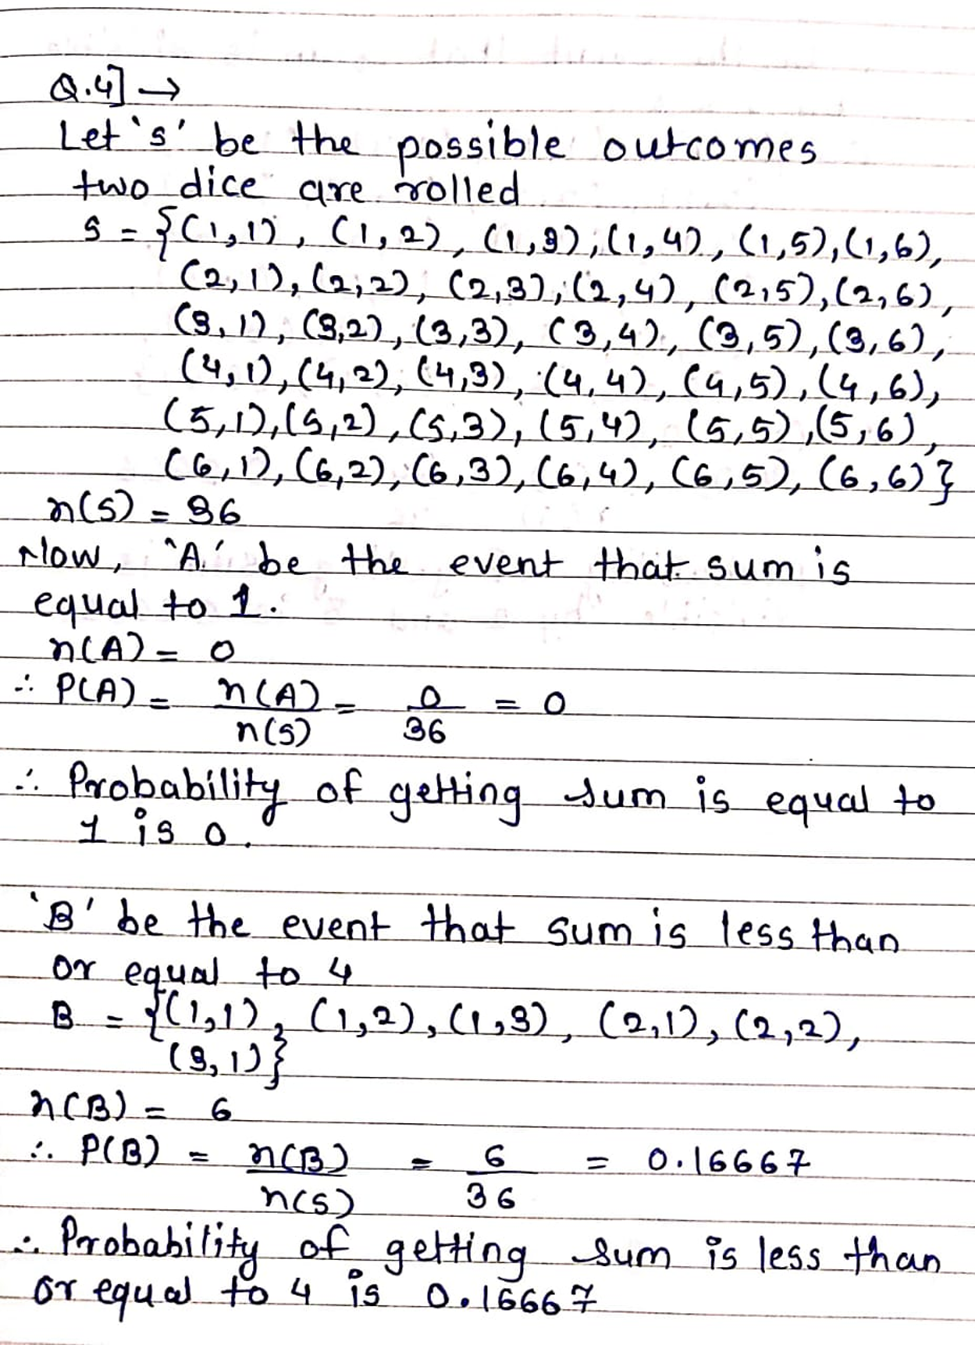 Q.4] →
Let 's' be the possible outcomes
two dice are rolled
S = {(1,1), (1,2), (1,3), (1,4), (1,5), (1,6),
(2,1), (2,2), (2,3), (2,4), (2,5), (2,6),
(3,1), (3,2), (3,3), (3,4), (3,5), (3,6),
(4,1), (4,2), (4,3), (4,4), (4,5), (4,6),
(5,1), (5,2), (5,3), (5,4), (5,5), (5,6),
(6,1), (6,2), (6,3), (6,4), (6,5), (6,6)}
n(S) = 36
Now, 'A' be the event that sum is
equal to 1.
n(A) = 0
∴ P(A) = n(A)/n(S) = 0/36 = 0
∴ Probability of getting sum is equal to
1 is 0.
'B' be the event that sum is less than
or equal to 4
B = {(1,1), (1,2), (1,3), (2,1), (2,2),
(3,1)}
n(B) = 6
∴ P(B) = n(B)/n(S) = 6/36 = 0.16667
∴ Probability of getting sum is less than
or equal to 4 is 0.16667